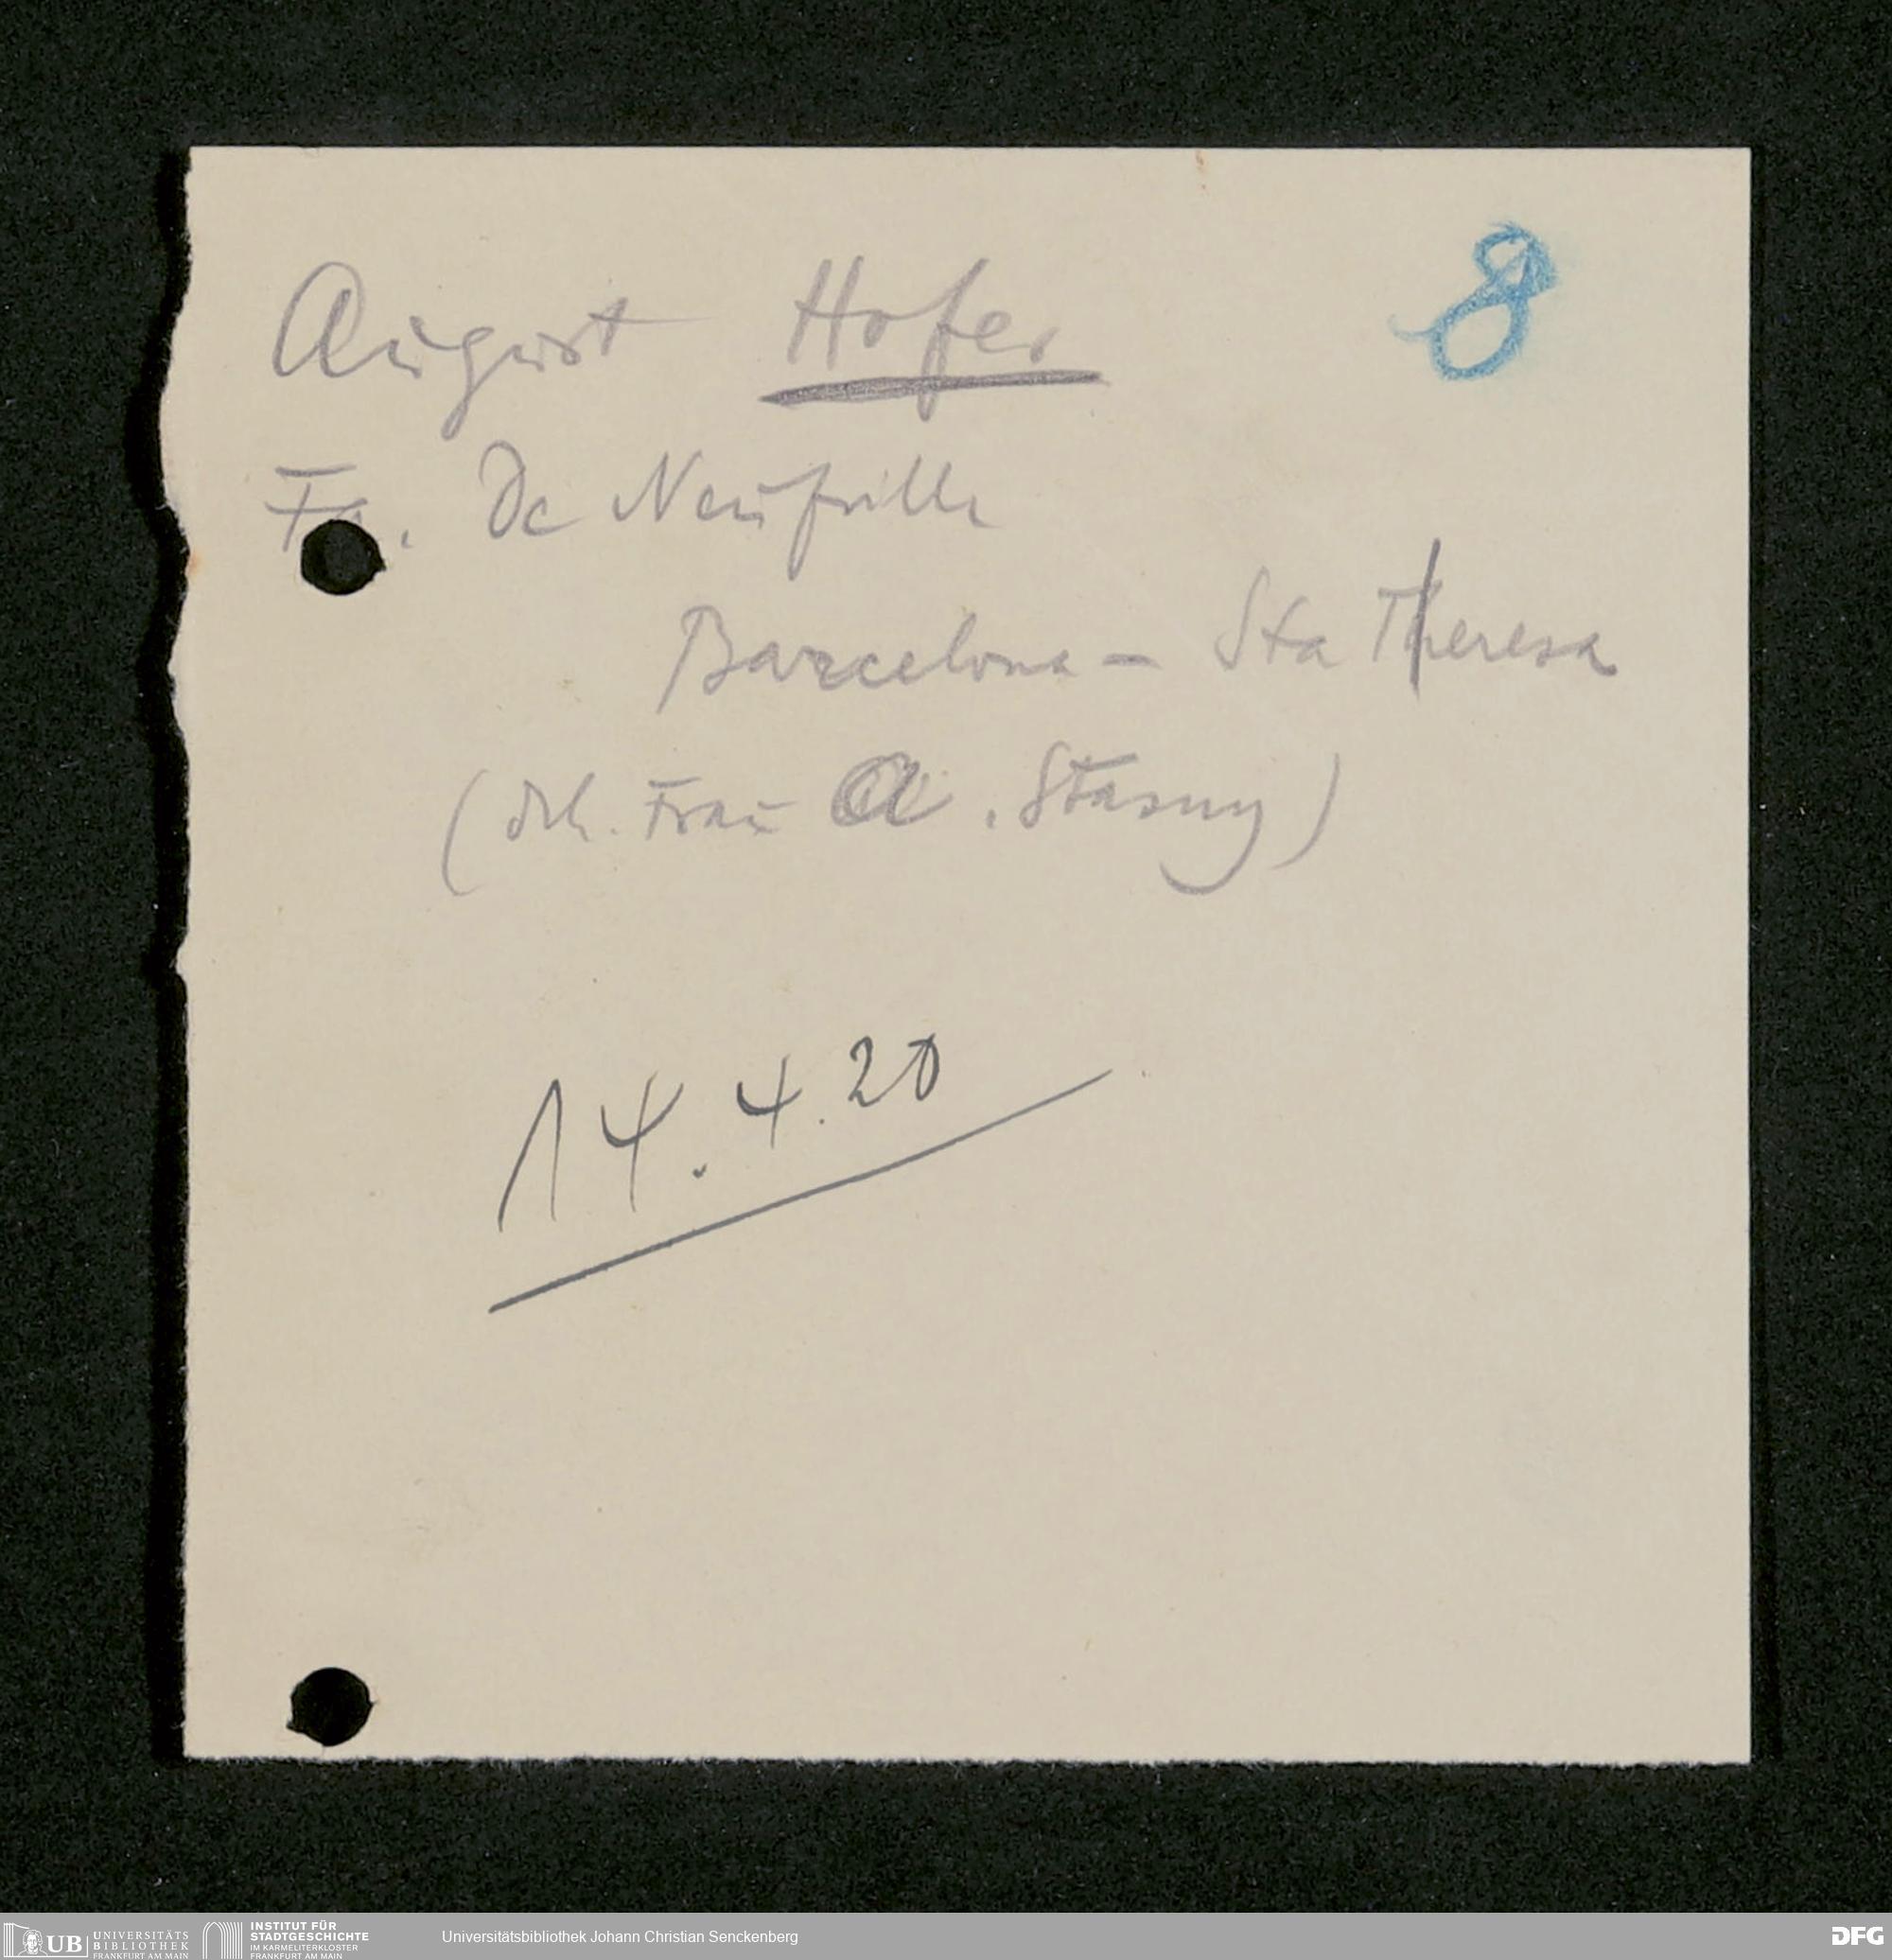 August Hofer 8
Fa. De Neufville
Barcelona - Sta Theresa
(dch. Frau A. Stasny)
14.4.20
UB UNIVERSITÄTS BIBLIOTHEK FRANKFURT AM MAIN
INSTITUT FÜR STADTGESCHICHTE IM KARMELITERKLOSTER FRANKFURT AM MAIN
Universitätsbibliothek Johann Christian Senckenberg
DFG